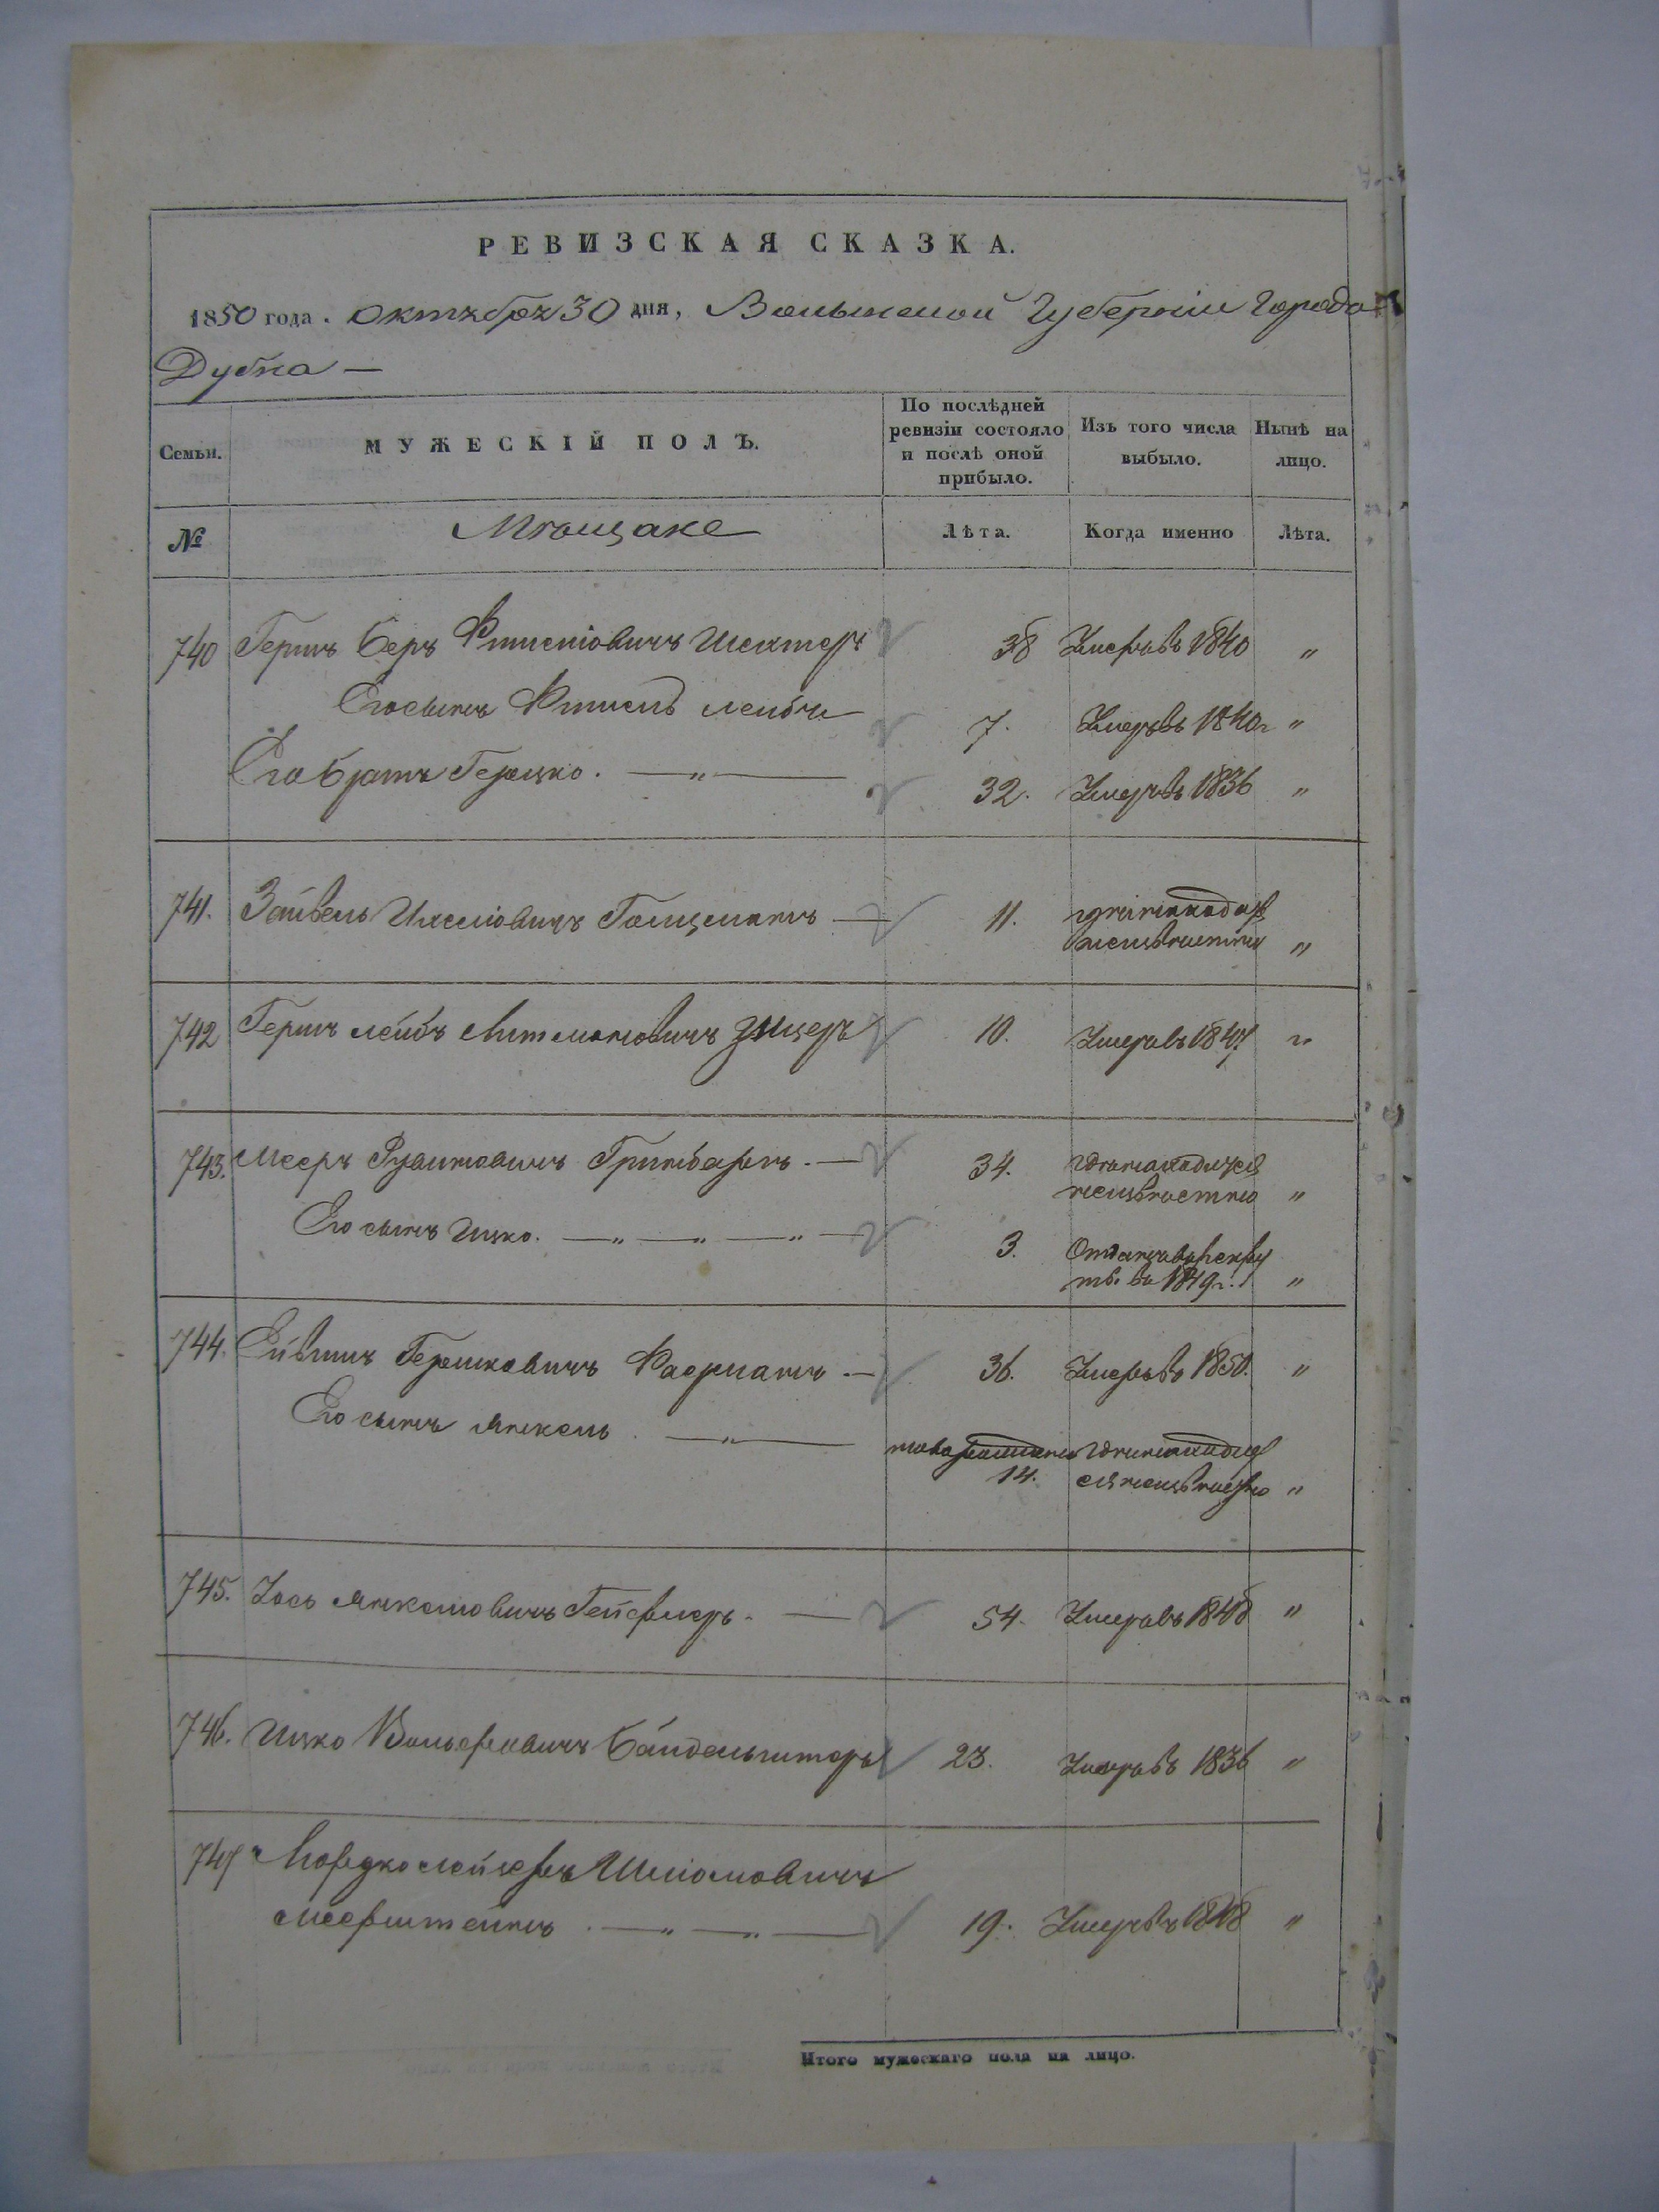 РЕВИЗСКАЯ СКАЗКА.
1850 года. октября 30 дня, Волынской Губерніи Города
Дубна —
Семьи.
МУЖЕСКІЙ ПОЛЪ.
По послѣдней ревизіи состояло и послѣ оной прибыло.
Изъ того числа выбыло.
Нынѣ на лицо.
№
Мѣщане
Лѣта.
Когда именно
Лѣта.
740 Гершъ Беръ Фишеліовичъ Шехтеръ 38 Умеръ въ 1840 "
Его сынъ Фишель Лейбъ 7. Умеръ въ 1840г "
Его братъ Гершко. — " — 32. Умеръ въ 1836 "
741. Зайвель Ихеліовичъ Гольцманъ — 11. гдѣ находится
неизвѣстно "
742 Гершъ Лейбъ Литмановичъ Зицеръ 10. Умеръ въ 1847 "
743. Мееръ Рувиновичъ Гринбергъ. — 34. гдѣ находится
неизвѣстно "
Его сынъ Ицко. — " — " — " — 3. Отданъ въ рекру
ты. въ 1849г. "
744. Гершковичъ Фаерманъ — 36. Умеръ въ 1850. "
Его сынъ Янкель. — " — гдѣ находит
14. ся неизвѣстно "
745. Іось Янкеліовичъ — 54. Умеръ въ 1848 "
746. Ицко Вольфовичъ 23. Умеръ въ 1836 "
747 Мордко Лейзеръ Шліомовичъ
Меерштейнъ. — " — " — 19. Умеръ въ 1848 "
Итого мужескаго пола на лицо.